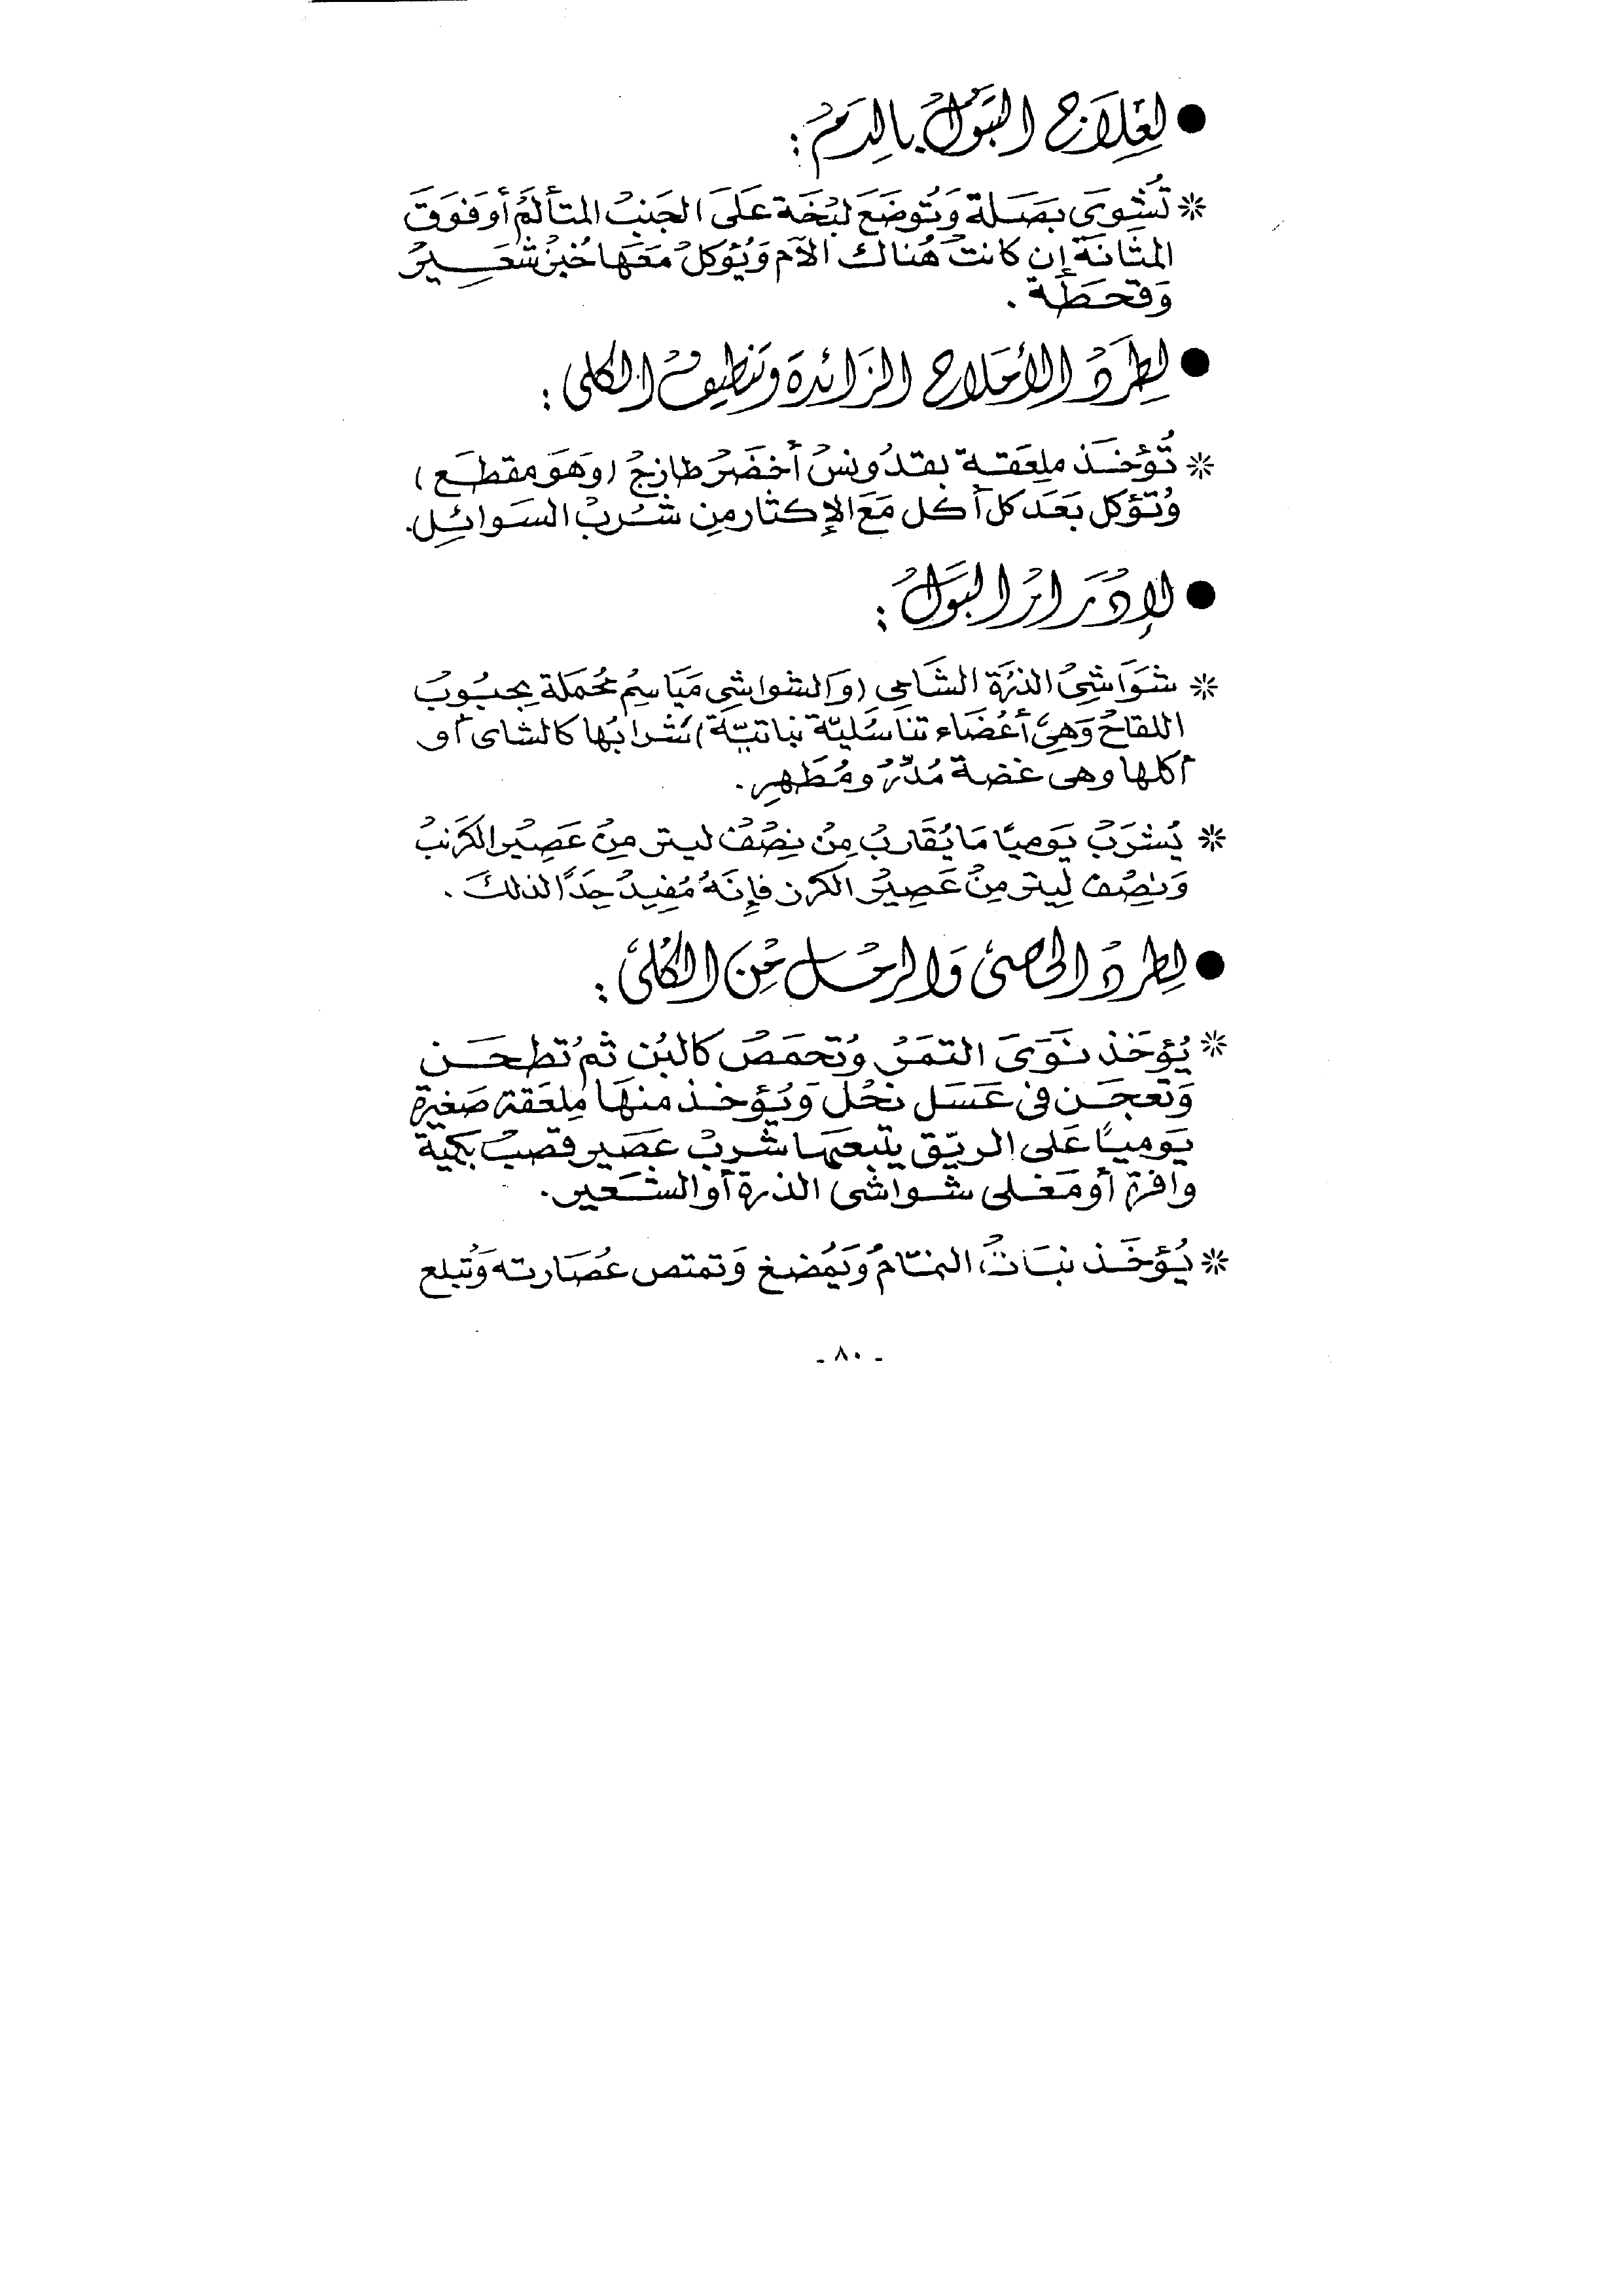 ● لِعِلَاج البَوْلُ بِالدَمْ :
* تُشْوَى بَصَلة وَتُوضَعَ لبْخَة عَلَى الجَنبْ المتألمْ أوفَوقَ
المثَانَة إن كانتْ هُناك آلام وَيُؤكلْ مَعَهَا خُبزْ شَعِيرْ
وَقحطَة .
● لِطَردْ الأمْلاح الزَائدة وتنظيفْ الكلى :
* تُؤخَذ ملِعَقة بقدُونسْ أخضَرْ طازجْ ( وَهوَ مقطع )
وُتؤكل بَعَدَ كل أكل مَعَ الإكثار مِن شُربْ السَوائِل .
● لإدْرَارْ البَولْ :
* شَوَاشِىْ الذرَة الشَامِى ( وَالشواشِى مَيَاسِمْ مُحَملة بحبُوبْ
اللقاحْ وَهِىَ أعْضَاء تناسُليّة نباتيّة ) شرابُها كالشاى أو
أكلها وهى غضة مُدّرْ ومُطَهِر .
* يُشرَبْ يَوميًا مَا يُقَاربْ مِنْ نِصْفْ ليتر مِنْ عَصِيْر الكرَنبْ
وَنِصْف لِيتر مِنْ عَصِيْر الكرن فإنَهُ مُفِيدْ جِدًا لذلكَ .
● لِطردْ الحصىَ وَالرمْل مْنِ الكُلىَ :
* يُؤخَذ نَوَىَ التمَرْ وُتحمَصْ كالبُن ثمْ تُطحَن
وَتعجَن فى عَسَل نحْل وَيُؤخذ منهَا مِلعَقة صَغيرة
يَوميًا عَلى الريّق يتبعهَا شُربْ عَصَير قصبْ بكمية
وافرة أو مَغلى شواشى الذرة أو الشَعير .
* يُؤخَذ نبَاتْ النمّامْ وَيَمُضغ وَتمتص عُصَارته وَتُبلع
- ٨٠ -